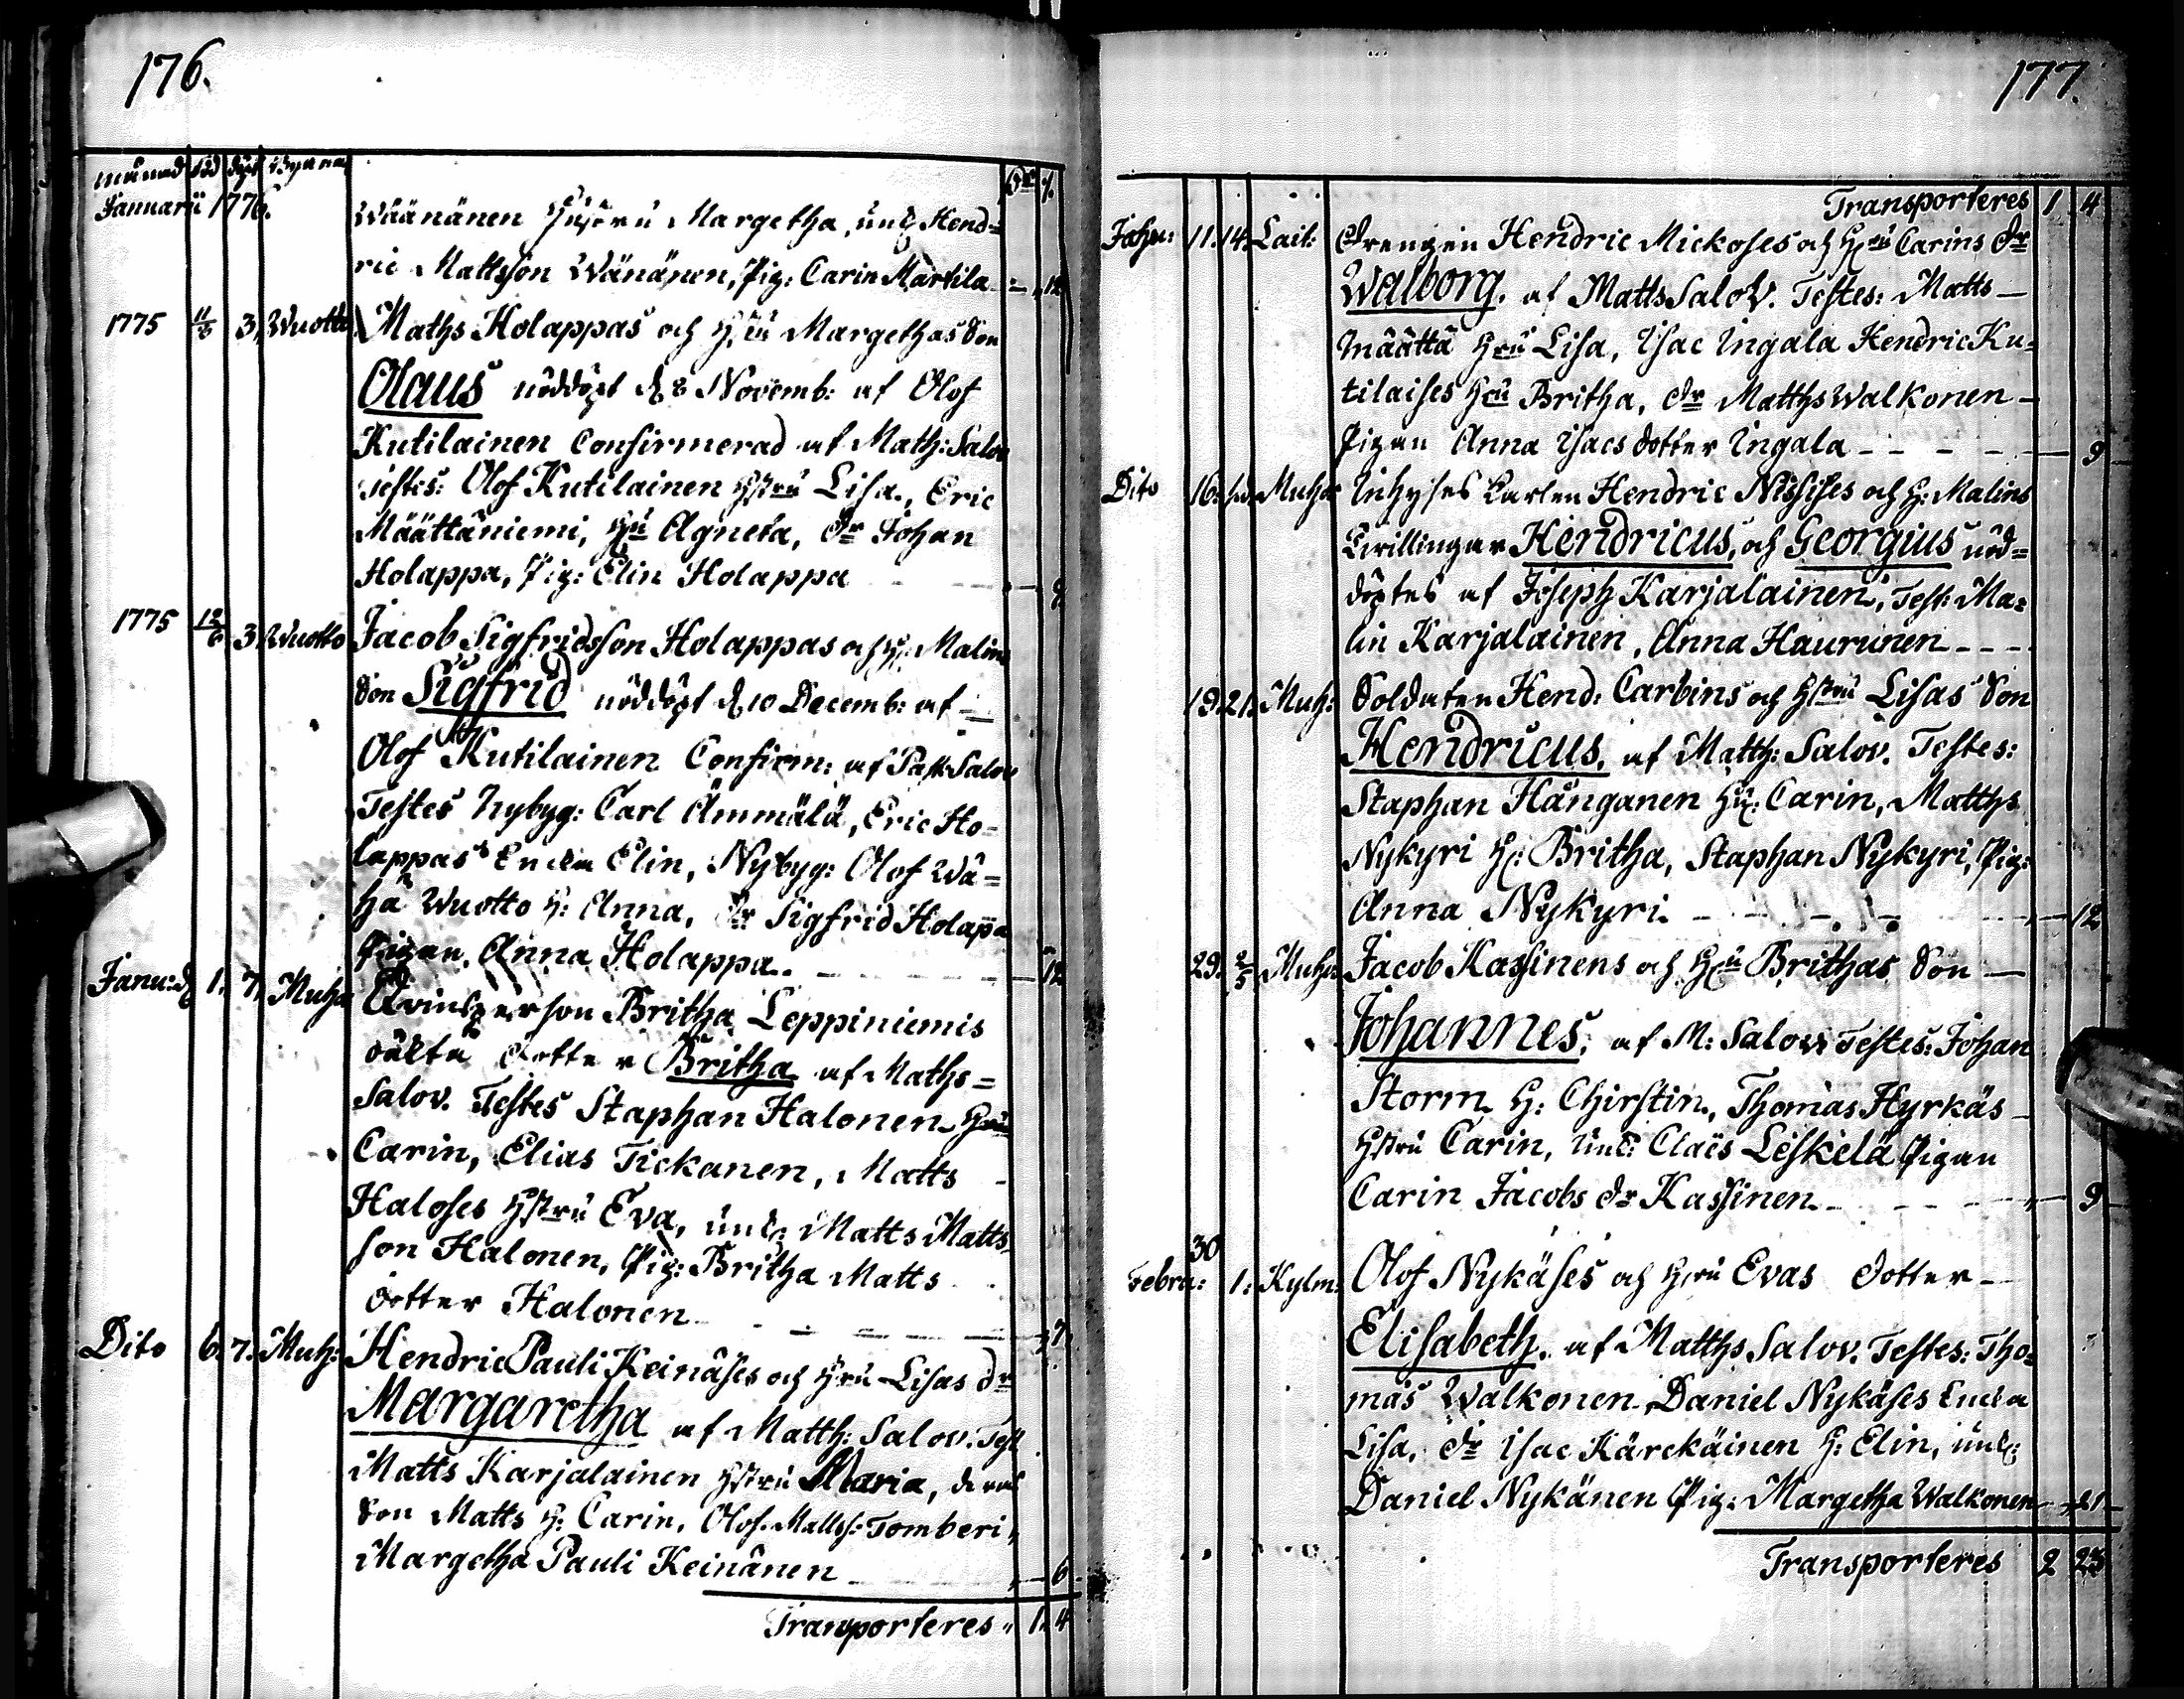 176.
månad föd döpt Byarna
Januarii 1776.
Wäänänen Hustru Margetha, und Hend=
ric Mattsson Wänänen, Pig: Carin Martila 12
1775 11/6 3, Wuotto Maths Holappas och H:u Margethas Son
Olaus nöddöpt d 8 Novemb: af Olof
Kutilainen Confirmerad af Math: Salov
Testes: Olof Kutilainen Hstru Lisa, Eric
Määttäniemi, Hu Agneta, dr Johan
Holappa, Pig: Elin Holappa 9
1775 12/6 3 Wuotto Jacob Sigfridsson Holappas och H: Malins
Son Sigfrid nöddöpt d 10 Decemb: af
Olof Kutilainen Confirm: af Past: Salov
Testes Nybyg: Carl Ämmälä, Eric Ho=
lappas Enkia Elin, Nybyg: Olof Wä=
hä Wuotto H: Anna, dr Sigfrid Holapa
Pigan Anna Holappa. 12
Janu: d 1. 7, Muhos Qvinsperson Britha Leppiniemis
oäkta dotter Britha af Maths=
Salov. Testes Staphan Halonen Hru
Carin, Elias Tickanen, Matts
Haloses Hstru Eva, und: Matts Matts
son Halonen, Pig: Britha Matts
dotter Halonen 7
Dito 6. 7. Muh: Hendric Pauli Keinäses och Hru Lisas dr
Margaretha af Matth: Salov. Test
Matts Karjalainen Hstru Maria, deras
Son Matts H: Carin, Olof Matts: Tomberi,
Margetha Pauli Keinänen 6
Transporteres 1. 4
177.
Transporteres 1 4
Janu: 11. 14. Lait: Drengen Hendric Mickoses och Hru Carins dr
Walborg. af Matts Salov. Testes: Matts
Määttä Hru Lisa, Isac Ingala Hendric Ku=
tilaises Hru Britha, dr Matths Walkonen
Pigan Anna Isacs dotter Ingala 9
Dito 16. Muhos Inhyses Karlen Hendric Nissises och H: Malins
Twillingar Hendricus, och Georgius nöd=
döptes af Joseph Karjalainen, Test: Ma=
lin Karjalainen, Anna Haurunen
19. 21. Muh: Soldaten Hend: Carbins och Hstru Lisas Son
Hendricus. af Matth: Salov. Testes:
Staphan Hånganen Hu: Carin, Matths
Nykyri H: Britha, Staphan Nykyri, Pig:
Anna Nykyri 12
29. Muhos Jacob Kassinens och Hru Brithas Son
Johannes. af M: Salov Testes: Johan
Storm H: Chirstin, Thomas Hyrkäs
Hstru Carin, und: Claës Leskelä Pigan
Carin Jacobs dr Kassinen 9
30
Febru: 1: Kylm: Olof Nykäses och Hru Evas dotter
Elisabeth. af Matths Salov. Testes: Tho=
mas Walkonen, Daniel Nykäses Enkia
Lisa, dr Isac Kärckäinen H: Elin, und:
Daniel Nykänen Pig: Margetha Walkonen 21
Transporteres 2 23